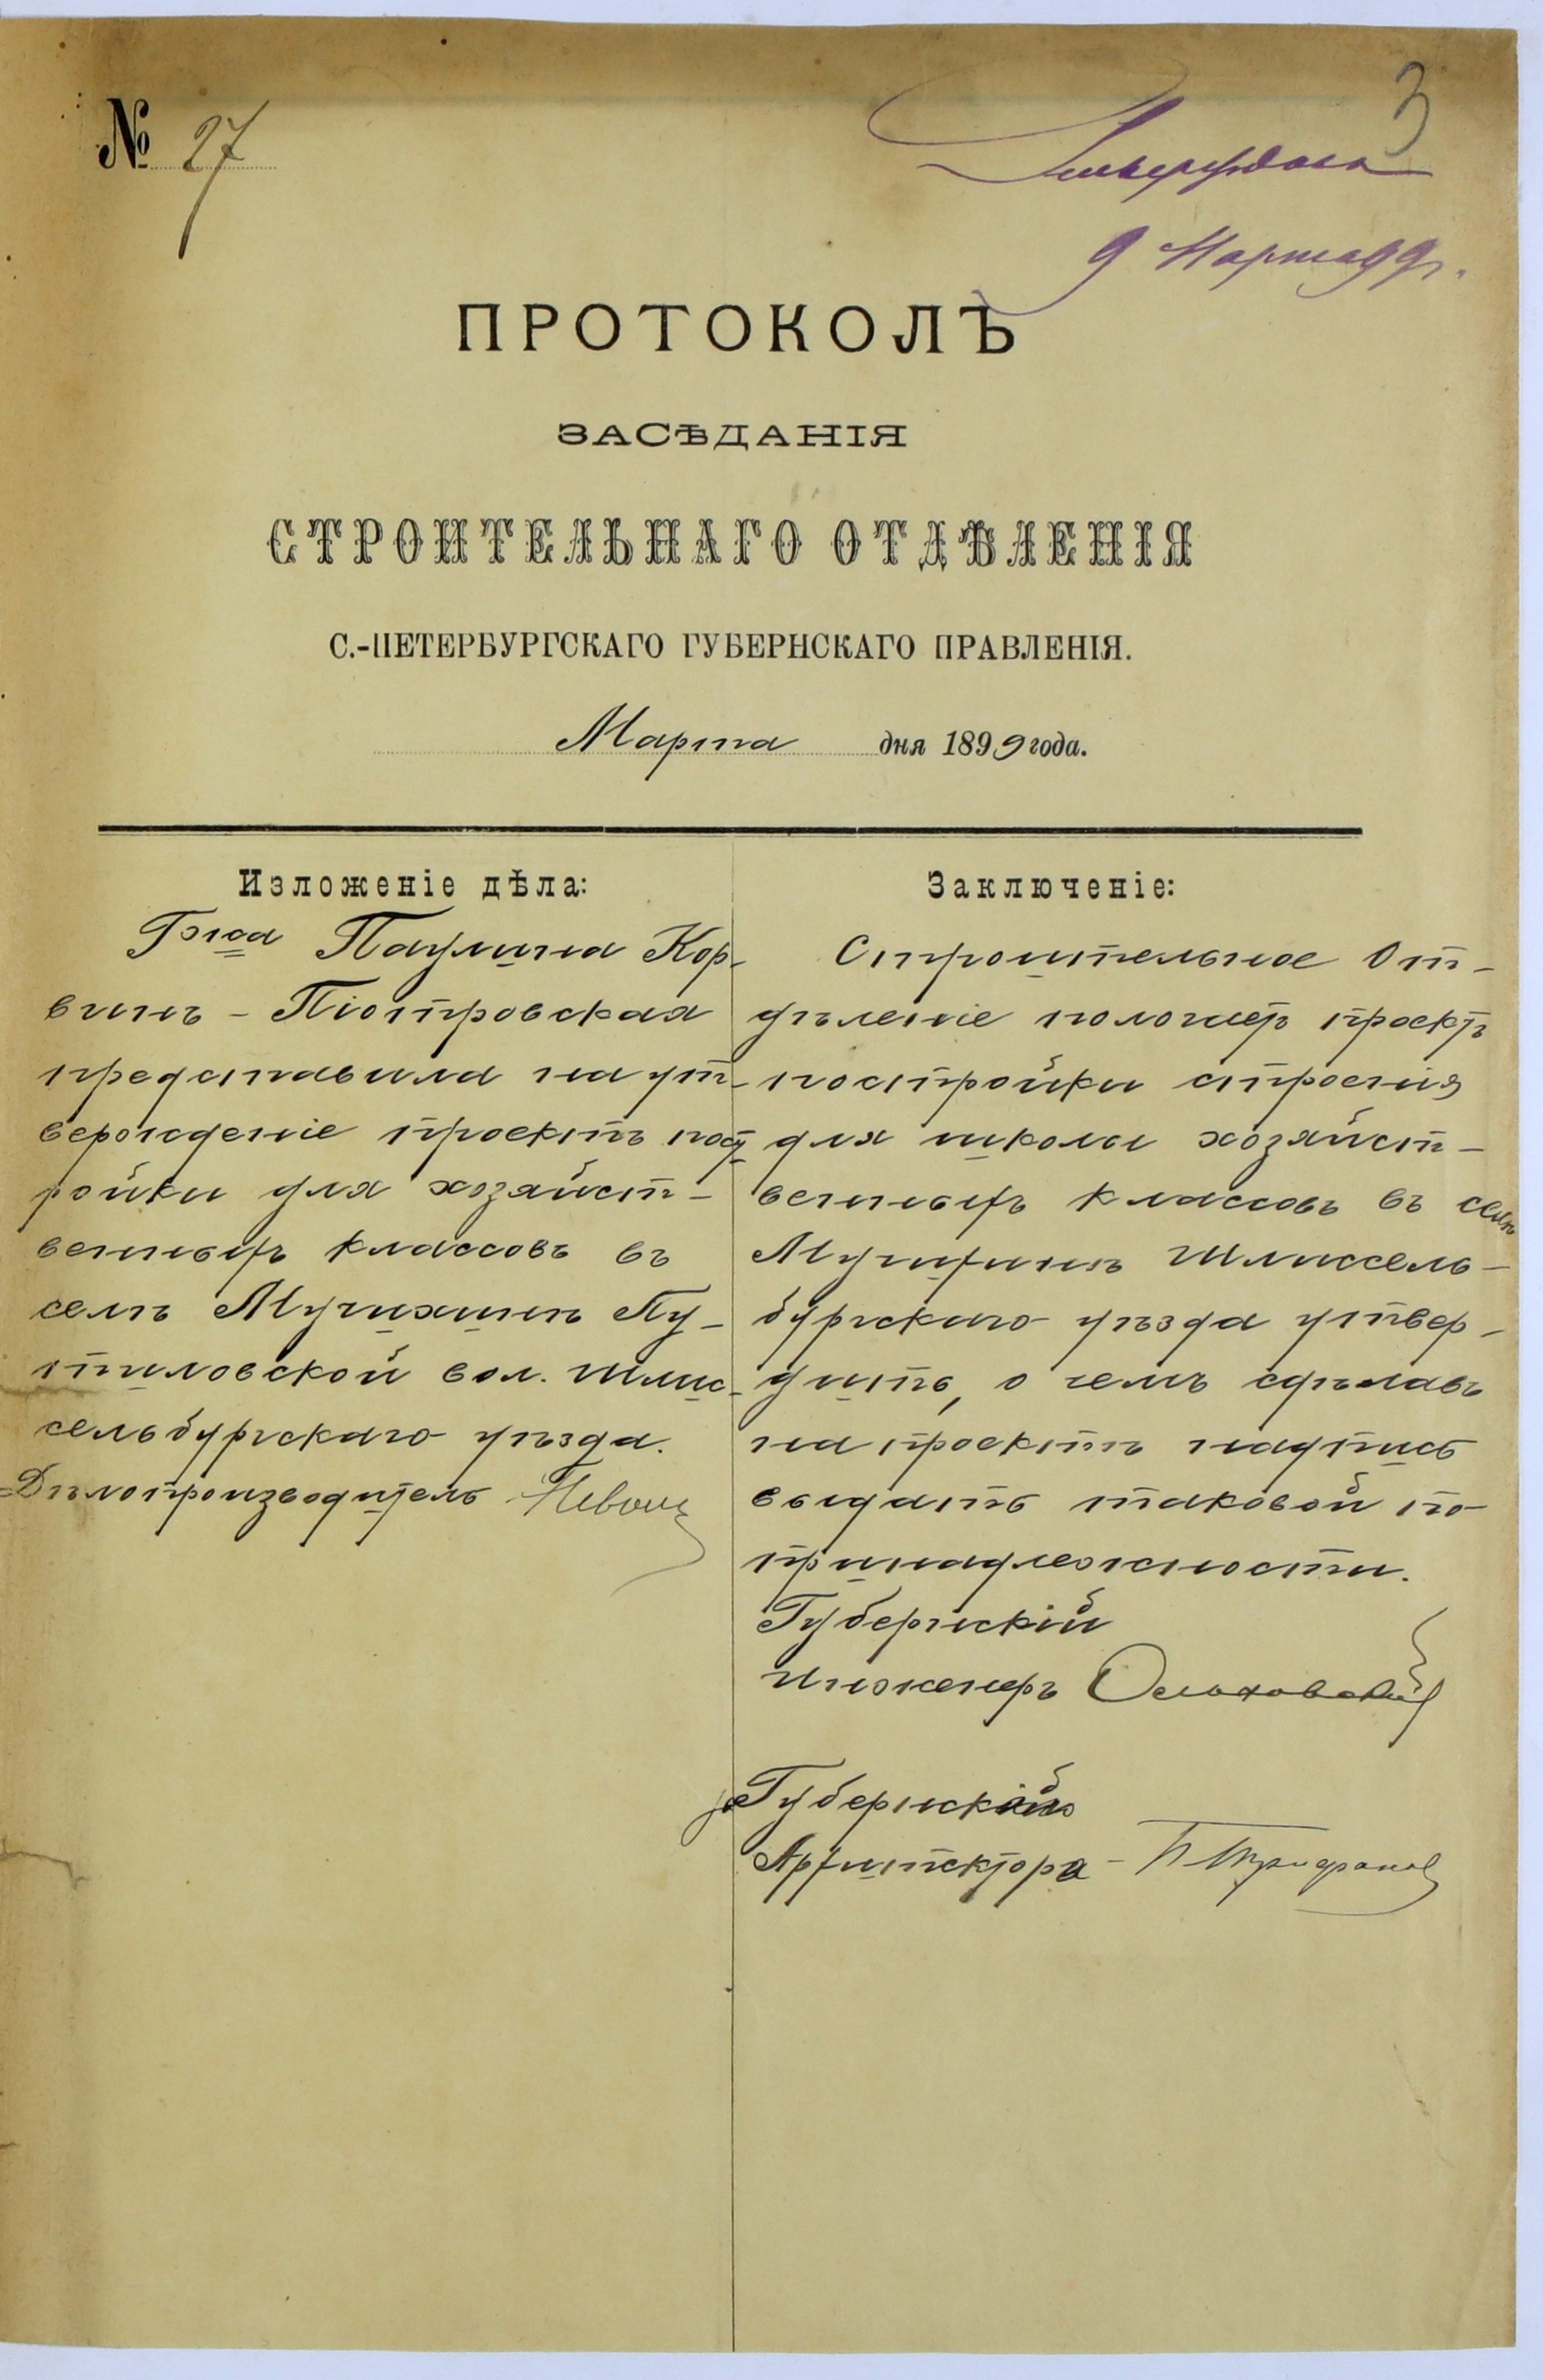 № 27
3
Утверждаю
9 Марта 99 г.
ПРОТОКОЛЪ
ЗАСѢДАНІЯ
СТРОИТЕЛЬНАГО ОТДѢЛЕНІЯ
С.-ПЕТЕРБУРГСКАГО ГУБЕРНСКАГО ПРАВЛЕНІЯ.
Марта дня 1899 года.
Изложеніе дѣла:
Г-жа Паулина Кор-
винъ - Піотровская
представила на ут-
вержденіе проектъ пост
ройки для хозяйст-
венныхъ классовъ въ
селѣ Мучихинѣ Пу-
тиловской вол. Шлис-
сельбургскаго уѣзда.
Дѣлопроизводитель
Заключеніе:
Строительное От-
дѣленіе положило проектъ
постройки строенія
для школы хозяйст-
венныхъ классовъ въ селѣ
Мучихинѣ Шлиссель-
бургскаго уѣзда утвер-
дить, о чемъ сдѣлавъ
на проектѣ надпись
выдать таковой по
принадлежности.
Губернскій
Инженеръ Ольховскій
за Губернскаго
Архитектора - П Трифанов